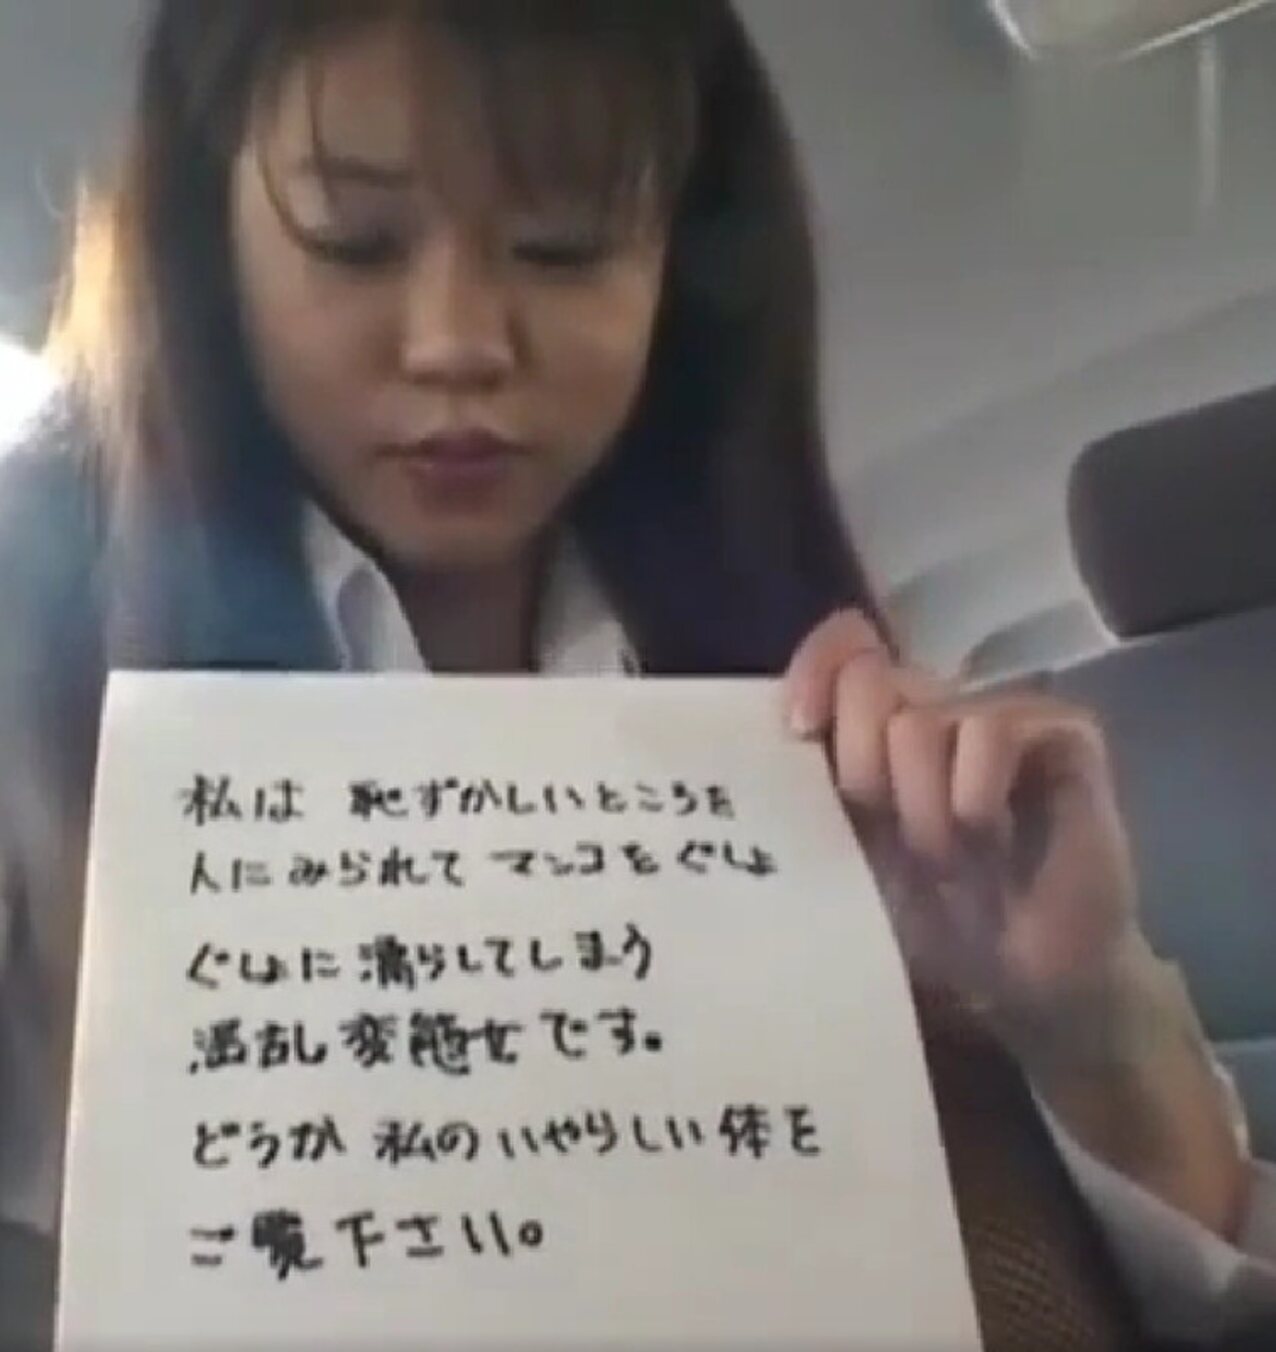 私は 恥ずかしいところを
人にみられて マンコをぐしょ
ぐしょに濡らしてしまう
淫乱変態女です。
どうか 私のいやらしい体を
ご覧下さい。